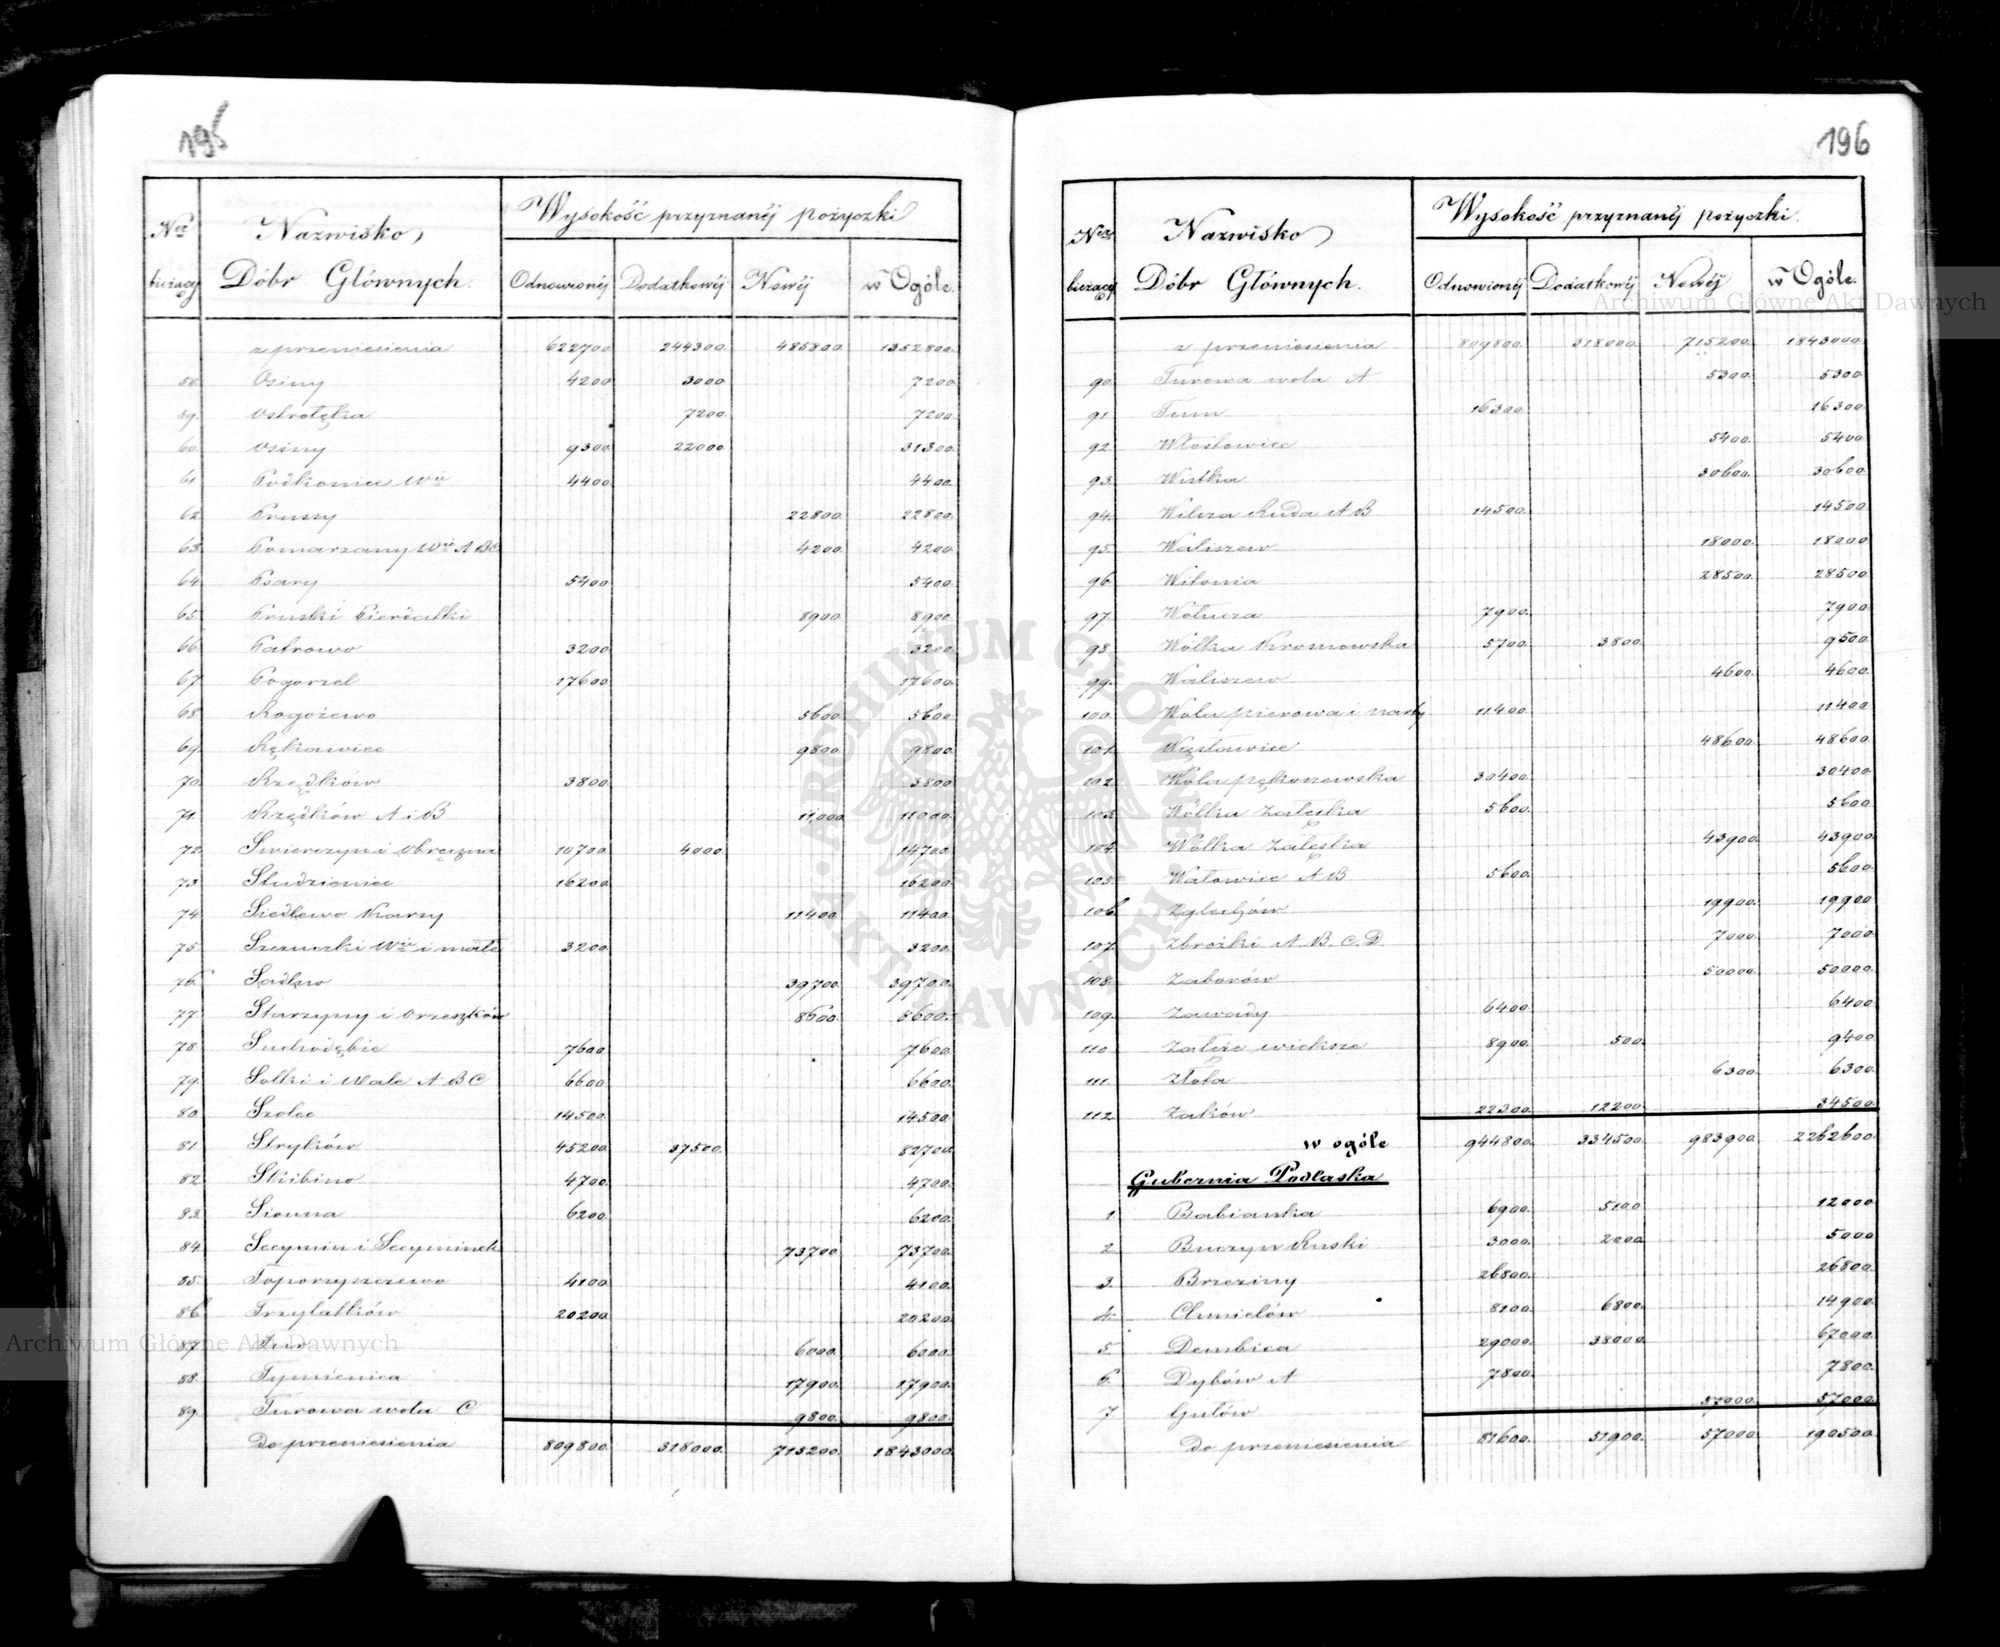 195
Ner bieżący Nazwisko Dóbr Głównych. Wysokość przyznanéj pożyczki
Odnowionéj Dodatkowéj Nowéj w Ogóle.
z przeniesienia 622700. 244300. 485800. 1352800.
58. Osiny 4200. 3000. 7200.
59. Ostrołęka 7200. 7200.
60. Osiny 9300. 22000. 31300.
61. Podkonice Wie 4400. 4400.
62. Prussy 22800. 22800.
63. Pomarzany Wie A B C 4200. 4200.
64. Psary 5400. 5400.
65. Pruski Pierdatki 8900. 8900.
66. Patrowo 3200. 3200.
67. Pogorzel 17600. 17600.
68. Rogożewo 5600. 5600.
69. Rękawiec 9800. 9800.
70. Rzędków 3800. 3800.
71. Rzędków A i B 11000. 11000.
72. Świerczyn i Obręczna 10700. 4000. 14700.
73. Studzieniec 16200. 16200.
74. Siedlewo Karsy 11400. 11400.
75. Szczuczki Wie i małe 3200. 3200.
76. Sadłno 39700. 39700.
77. Starzyny i Orzeszków 8600. 8600.
78. Suchodębie 7600. 7600.
79. Solki i Wale A B C 6600. 6600.
80. Szolec 14500. 14500.
81. Stryków 45200. 37500. 82700.
82. Skibino 4700. 4700.
83. Sionna 6200. 6200.
84. Secymin i Secyminek 73700. 73700.
85. Toporzyszczewo 4100. 4100.
86. Trzylatków 20200. 20200.
87. 6000. 6000.
88. Tymienica 17900. 17900.
89. Turowa wola C 9800. 9800.
Do przeniesienia 809800. 318000. 715200. 1843000.
196
Ner bieżący Nazwisko Dóbr Głównych. Wysokość przyznanéj pożyczki.
Odnowionéj Dodatkowéj Nowéj w Ogóle.
z przeniesienia 809800. 318000. 715200. 1843000.
90. Turowa wola A 5300. 5300.
91. Tum 16300. 16300.
92. Włostowice 5400. 5400.
93. Wistka 30600. 30600.
94. Wilcza Ruda A B 14500. 14500.
95. Waliszew 18000. 18000.
96. Witonia 28500. 28500.
97. Wołucza 7900. 7900.
98. Wólka Kromowska 5700. 3800. 9500.
99. Waliszew 4600. 4600.
100. Wola pierowa i narty 11400. 11400.
101. Węsławice 48600. 48600.
102. Wola pękoszewska 30400. 30400.
103. Wólka Załęska 5600. 5600.
104. Wólka Załęska 43900. 43900.
105. Wałowice A B 5600. 5600.
106. Zglechów 19900. 19900.
107. Zbrożki A. B. C. D. 7000. 7000.
108. Zaborów 50000. 50000.
109. Zawady 6400. 6400.
110. Załęże większe 8900. 500. 9400.
111. Złota 6300. 6300.
112. Żaków 22300. 12200. 34500.
w ogóle 944800. 334500. 983900. 2262600.
Gubernia Podlaska
1. Babianka 6900. 5100. 12000.
2. Buczyn Ruski 3000. 2000. 5000.
3. Brzeziny 26800. 26800.
4. Chmielów 8100. 6800. 14900.
5. Dembica 29000. 38000. 67000.
6. Dybów A 7800. 7800.
7. Gułów 57000. 57000.
Do przeniesienia 81600. 51900. 57000. 190500.
Archiwum Główne Akt Dawnych
Archiwum Główne Akt Dawnych
ARCHIWUM GŁÓWNE AKT DAWNYCH